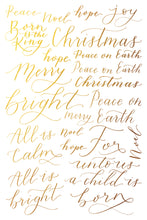 Peace Noel hope Joy
Born is the King
Christmas
hope Peace on Earth
Merry Christmas
bright Peace on Earth
merry
All is Calm
noel
hope
For unto us
Noel
All is bright
a child is born